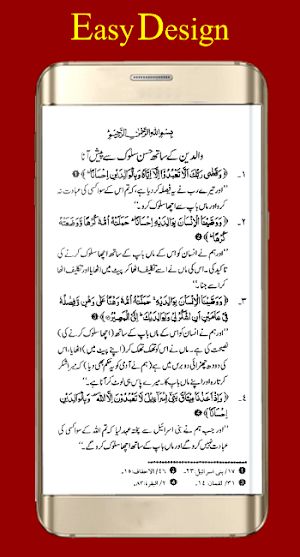 Easy Design
بِسْمِ اللّٰهِ الرَّحْمٰنِ الرَّحِيْمِ
والدین کے ساتھ حسن سلوک سے پیش آنا
۱۔ ﴿وَقَضٰى رَبُّكَ اَلَّا تَعْبُدُوْٓا اِلَّآ اِيَّاهُ وَبِالْوَالِدَيْنِ اِحْسَانًا﴾ ❶
''اور تیرے رب نے یہ فیصلہ کر دیا ہے، کہ تم اس کے سوا کسی کی عبادت نہ
کرو اور ماں باپ سے اچھا سلوک کرو۔''
۲۔ ﴿وَوَصَّيْنَا الْاِنْسَانَ بِوَالِدَيْهِ اِحْسَانًا ؕ حَمَلَتْهُ اُمُّهٗ كُرْهًا وَّوَضَعَتْهُ
كُرْهًا﴾ ❷
''اور ہم نے انسان کو اس کے ماں باپ سے اچھا سلوک کرنے کی
تاکید کی۔ اس کی ماں نے اسے تکلیف اٹھا کر پیٹ میں اٹھایا اور تکلیف اٹھا
کر اسے جنا۔''
۳۔ ﴿وَوَصَّيْنَا الْاِنْسَانَ بِوَالِدَيْهِ ۚ حَمَلَتْهُ اُمُّهٗ وَهْنًا عَلٰى وَهْنٍ وَّفِصٰلُهٗ
فِيْ عَامَيْنِ اَنِ اشْكُرْ لِيْ وَلِوَالِدَيْكَ ؕ اِلَيَّ الْمَصِيْرُ﴾ ❸
''اور ہم نے انسان کو اس کے ماں باپ کے ساتھ (اچھا سلوک کرنے کی)
نصیحت کی ہے۔ ماں نے اس کو تھک تھک کر (اپنے پیٹ میں) اٹھایا، اس
کی دودھ چھڑائی دو برس میں ہے (ہم نے آدمی کو یہ حکم بھی دیا) کہ میرا شکر
کرتا رہ اور اپنے ماں باپ کا۔ میرے پاس ہی لوٹ کر آنا ہے۔''
۴۔ ﴿وَاِذْ اَخَذْنَا مِيْثَاقَ بَنِيْٓ اِسْرَآءِيْلَ لَا تَعْبُدُوْنَ اِلَّا اللّٰهَ ۫ وَبِالْوَالِدَيْنِ
اِحْسَانًا﴾ ❹
''اور جب ہم نے بنی اسرائیل سے پختہ عہد لیا کہ تم اللہ کے سوا کسی کی
عبادت نہیں کرو گے اور ماں باپ کے ساتھ اچھا سلوک کرو گے۔''
❶ ۱۷/ بنی اسرائیل: ۲۳۔ ❷ ۴۶/ الاحقاف: ۱۵۔
❸ ۳۱/ لقمان: ۱۴۔ ❹ ۲/ البقرۃ: ۸۳۔